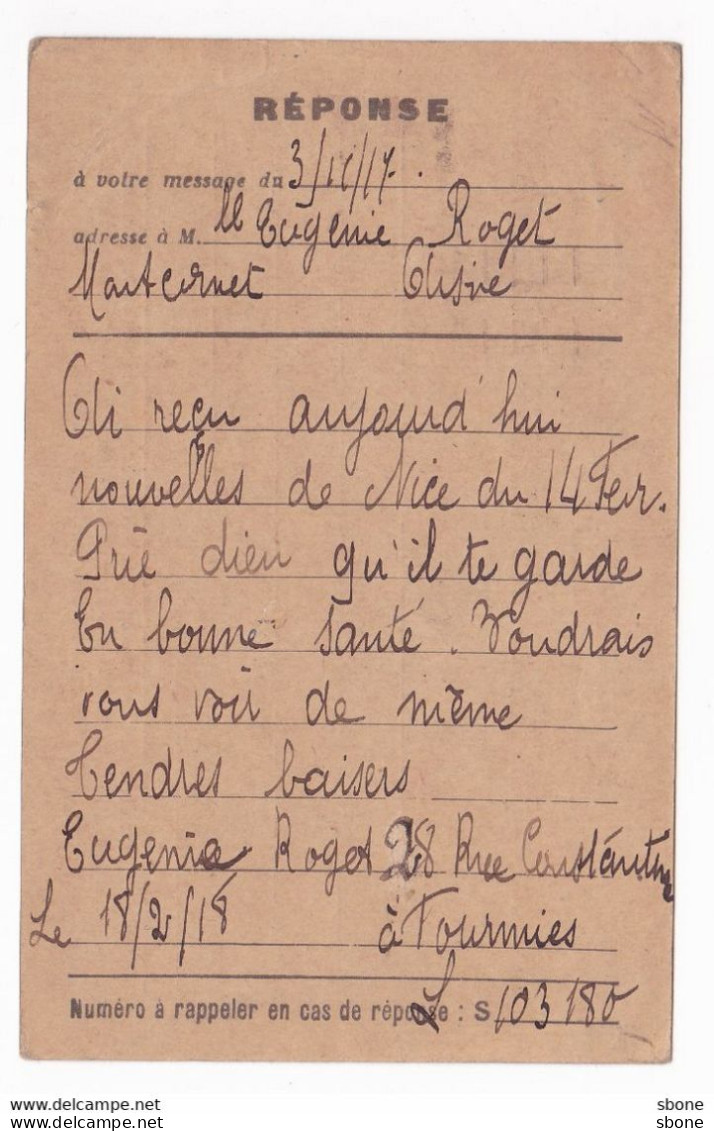 RÉPONSE
à votre message du 3/11/17.
adresse à M. lle Eugenie Roget
Montcornet Aisne
Ai reçu aujourd'hui
nouvelles de Nice du 14 Fev.
Prie dieu qu'il te garde
En bonne santé. Voudrais
vous voir de même
Tendres baisers
Eugenie Roget 28 Rue Constantine
Le 18/2/18 à Fourmies
Numéro à rappeler en cas de réponse : S 103180
sbone
sbone